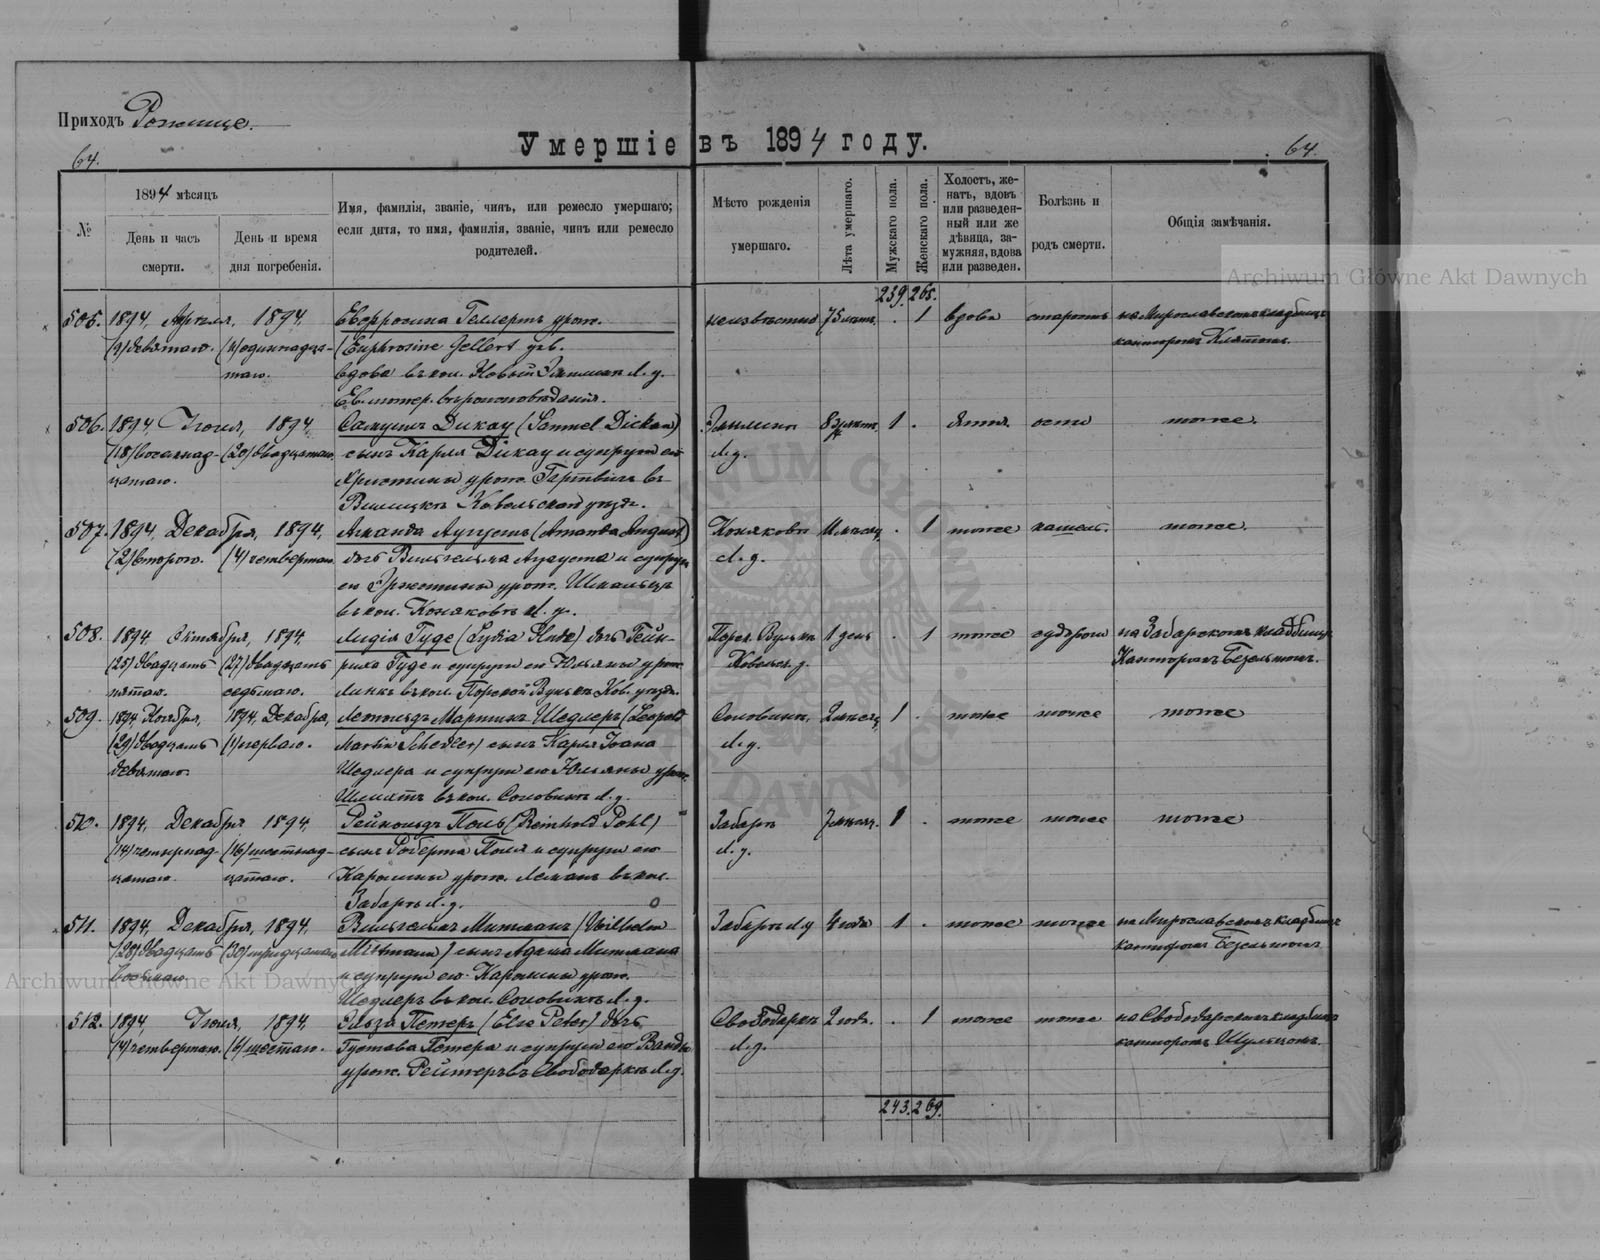 Приходъ Рожище.
Умершіе въ 1894 году.
64.
64.
№
1894 мѣсяцъ
День и часъ смерти.
День и время дня погребенія.
Имя, фамилія, званіе, чинъ, или ремесло умершаго;
если дитя, то имя, фамилія, званіе, чинъ или ремесло
родителей.
Мѣсто рожденія
умершаго.
Лѣта умершаго.
Мужскаго пола.
Женскаго пола.
Холостъ, же-
натъ, вдовъ
или разведен-
ный или же
дѣвица, за-
мужняя, вдова
или разведен.
Болѣзнь и
родъ смерти.
Общія замѣчанія.
Archiwum Główne Akt Dawnych
239. 265.
505. 1894, Апрѣля, 1894, Евфросина Геллертъ урож. неизвѣстно 75 лѣтъ. . 1 вдова старость на Мирославскомъ кладбищѣ
(9) девятаго. (11) одиннадца- (Euphrosine Gellert geb. канторомъ
таго. вдова въ кол. Новый Л. у.
Ев. лютер. вѣроисповѣданія.
506. 1894, Іюля, 1894, Самуилъ Дикау (Samuel Dickau) 1 . дитя. оспа тоже.
(18) восемнад- (20) двадцатаго. сынъ Карла Дикау и супруги его Л. у.
цатаго. Христины урож. Гертвигъ въ
Ковельской уѣзд.
507. 1894, Декабря, 1894, Аманда Аугустъ (Amanda August) Коняковъ 11 мѣсяц. . 1 тоже кашель. тоже.
(2) второго. (4) четвертаго. дочь Вильгельма Аугуста и супруги Л. у.
ея Эрнестины урож. Шмальцъ
въ кол. Коняковъ Л. у.
508. 1894, Октября, 1894, Лидія Гуде (Lydia Hude) дочь Гейн- Порск. Вулька 1 день . 1 тоже судороги на Забарскомъ кладбищѣ
(25) двадцать (27) двадцать риха Гуде и супруги его Юльяны урож. Ковельск. у. Канторомъ Безельтомъ.
пятаго. седьмаго. Линкъ въ кол. Порской Вулькѣ Ков. уѣзда.
509. 1894, Ноября, 1894, Декабря, Леопольдъ Мартинъ Шедлеръ (Leopold Соловинъ, 2 мѣсяц. 1 . тоже тоже тоже
(29) двадцать (1) перваго. Martin Schedler) сынъ Карла Іоана Л. у.
девятаго. Шедлера и супруги его Юльяны урож.
Шмидтъ въ кол. Соловинъ Л. у.
510. 1894, Декабря 1894, Рейнольдъ Поль (Reinhold Pohl) Забара 7 мѣсяц. 1 . тоже тоже тоже
(14) четырнад- (16) шестнад- сынъ Роберта Поля и супруги его Л. у.
цатаго. цатаго. Каролины урож. Леманъ въ кол.
Забара Л. у.
511. 1894, Декабря, 1894, Вильгельмъ Митманъ (Wilhelm Забара Л. у. 4 года 1 . тоже тоже на Мирославскомъ кладбищѣ
(28) двадцать (30) тридцатаго Mittmann) сынъ Адама Митмана канторомъ Безельтомъ
восьмаго. и супруги его Каролины урож.
Шедлеръ въ кол. Соловинъ Л. у.
Archiwum Główne Akt Dawnych
512. 1894, Іюля, 1894, Эльза Петеръ (Else Peter) дочь Свободарка 2 года. . 1 тоже тоже на Свободарскомъ кладбищѣ
(4) четвертаго. (6) шестаго. Густава Петера и супруги его Ванды Л. у. канторомъ Шульцомъ.
урож. Рейтеръ въ Свободаркѣ Л. у.
243. 269.